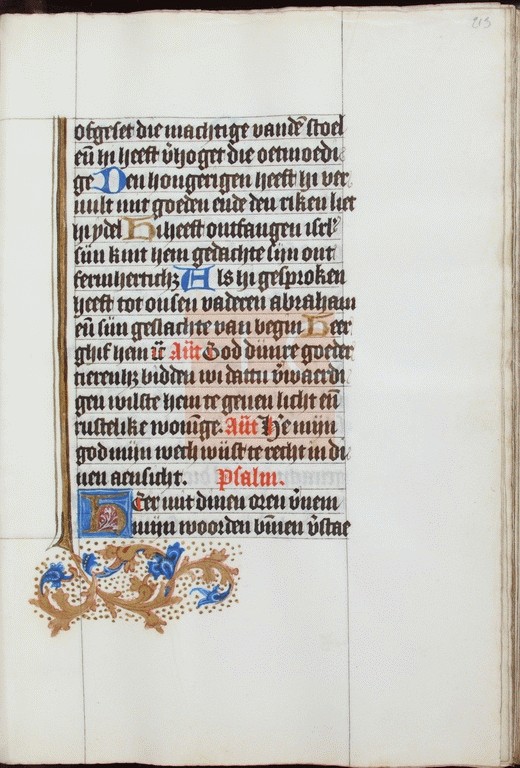 213
ofgeset die machtige vandē stoel
eñ hi heeft v̄hoget die oetmoedi
ge Den hongerigen heeft hi ver
vult mit goeden ende den riken liet
hi ydel Hi heeft ontfangen isrl̄
sijn kint hem gedachte sijn ont
fermhertichz Als hi gesproken
heeft tot onsen vaderen abraham
eñ sijn geslachte van begin Heer
God dijnre goeder
tierenhz bidden wi dattu v̄waerdi
gen wilste hem te geuen licht eñ
rustelike woninge. Añt He mijn
god mijn wech wijst te recht in di
nen aensicht. Psalm.
HEer mit dinen oren v̄nem
mijn woorden v̄stae